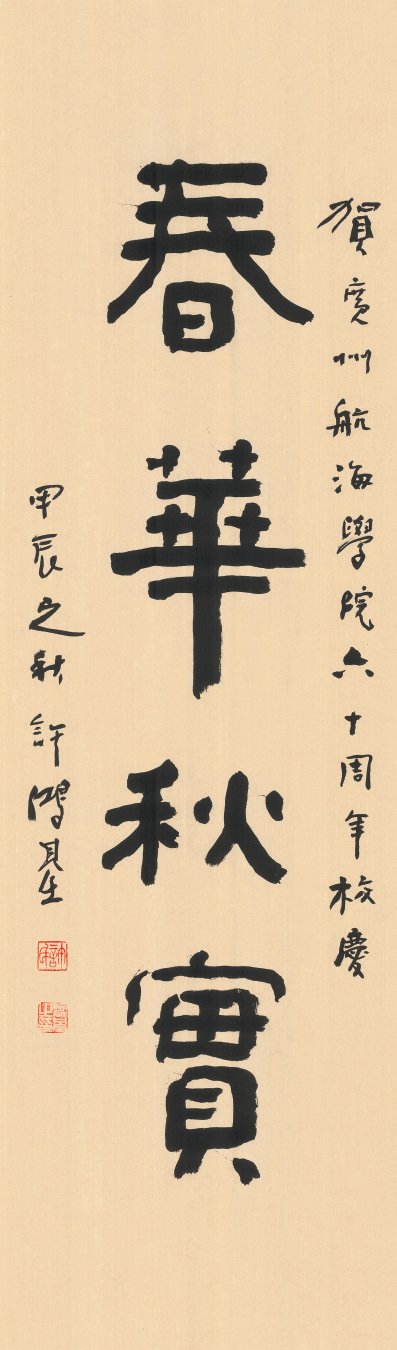 賀廣州航海學院六十周年校慶
春華秋實
甲辰之秋許鴻基